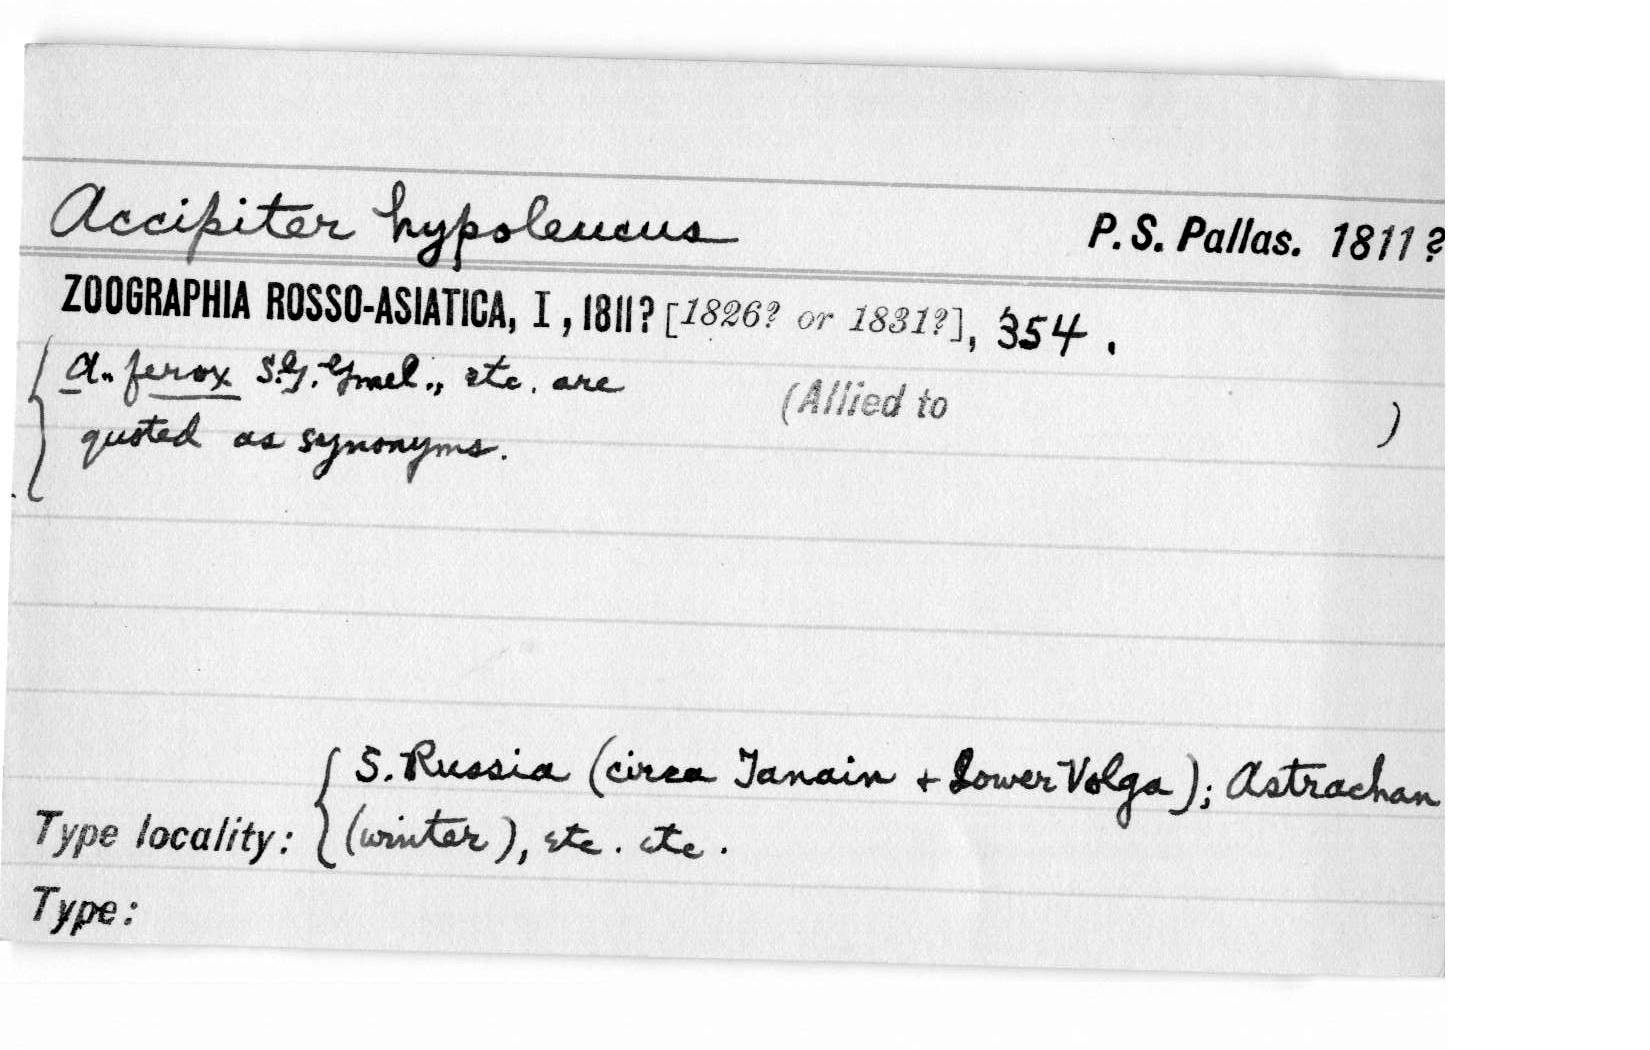 Accipiter hypoleucus P. S. Pallas. 1811?
ZOOGRAPHIA ROSSO-ASIATICA, I, 1811? [1826? or 1831?], 354.
A. ferox S.G. Gmel., etc. are
(Allied to )
quoted as synonyms.
S. Russia (circa Tanain + Lower Volga); Astrachan
Type locality: (winter), etc. etc.
Type: